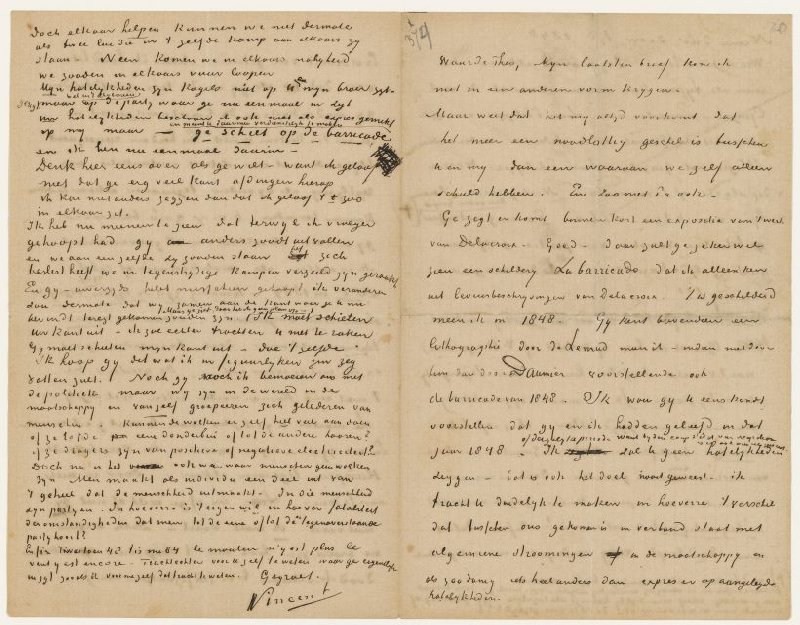 Doch elkaar helpen kunnen we niet dermate
als twee lui die in 't zelfde kamp aan elkaars zij
staan. Neen komen we in elkaars nabijheid
we zouden in elkaars vuur loopen
Mijn hatelijkheden zijn kogels niet op U die mijn broer zijt
maar op de partij waar ge nu eenmaal in zijt
hatelijkheden ook niet als expres gemikt
op mij maar – ge schiet op de barricade
en ik ben nu eenmaal daarin –
Denk hier eens over als ge wilt – want ik geloof
niet dat ge erg veel kunt afdingen hierop
ik kan niet anders zeggen dan dat ik geloof 't zoo
in elkaar zit.
Ik heb nu meenen te zien dat terwijl ik vroeger
gehoopt had gij anders zoudt uitvallen
en we aan een zelfde zij zouden staan het zich
herleid heeft we in tegenstrijdige kampen verzeild zijn geraakt
En gij – uwerzijds hebt misschien gehoopt ik veranderen
zou dermate dat wij samen aan de kant waar je U nu
bevindt teregt gekomen zouden zijn. Ik moet schieten
Uw kant uit – ik zal echter trachten U niet te raken
Gij moet schieten mijn kant uit – doe 't zelfde.
Ik hoop gij dit wat ik in figuurlijken zin zeg
vatten zult. Noch gij noch ik bemoeien ons met
de politiek maar wij zijn in de wereld in de
maatschappij en van zelf groepeeren zich gelederen van
menschen. Kunnen de wolken er zelf heel veel aan doen
of ze tot de een donderbui of tot de andere hooren?
of ze dragers zijn van positieve of negatieve electriciteit?
Doch nu is het ook waar menschen geen wolken
zijn. Men maakt als individu een deel uit van
't geheel dat de menschheid uitmaakt. In die menschheid
zijn partijen. In hoeverre is 't eigen wil en hoever fataliteit
der omstandigheden dat men tot de eene of tot de tegenovergestaande
partij hoort?
Enfin 't was toen 48 't is nu 84 le moulin n'y est plus le
vent y est encore. Tracht echter voor uzelf te weten waar ge eigenlijk
in zijt zooals ik voor mezelf dat tracht te weten. Gegroet.
Vincent
Waarde Theo, Mijn laatsten brief kon ik
niet in een anderen vorm krijgen.
Maar weet dat het mij altijd voorkomt dat
het meer een noodlottig geschil is tusschen
U en mij dan een waarvan we zelf alleen
schuld hebben. En zoo met is ook.
Ge zegt er komt binnen kort een expositie van 't werk
van Delacroix. Goed. Daar zult ge zeker wel
zien een schilderij La barricade dat ik alleen ken
uit levensbeschrijvingen van Delacroix. 't Is geschilderd
meen ik in 1848. Gij kent bovendien een
lithographie door de Lemud meen ik – indien niet door
hem dan door Daumier voorstellende ook
de barricade van 1848. Ik wou gij U eens kondt
voorstellen dat gij en ik hadden geleefd in dat
jaar 1848. Ik zal U geen hatelijkheden
zeggen – dat is ook het doel nooit geweest – ik
tracht U duidelijk te maken in hoeverre 't verschil
dat tusschen ons gekomen is in verband staat met
algemeene stroomingen in de maatschappij en
als zoodanig iets heel anders dan expres er op aangelegde
hatelijkheden.